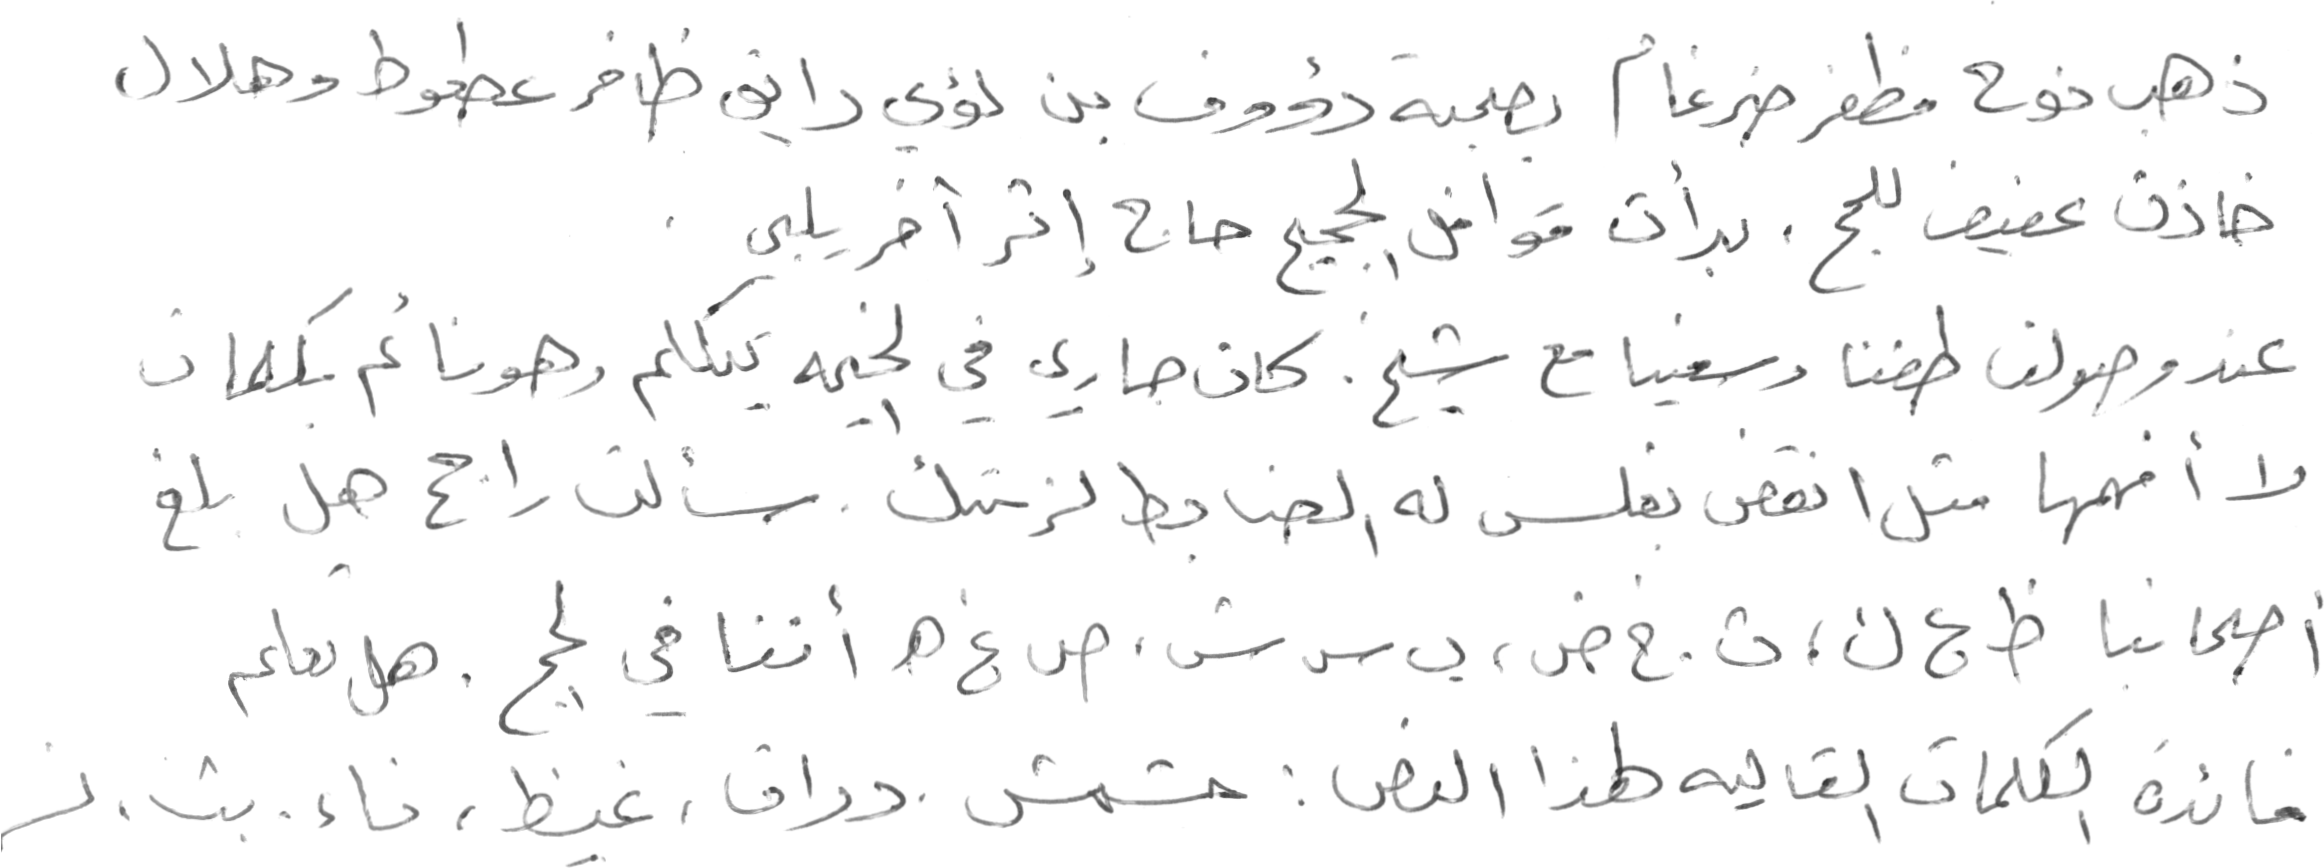 ذهب نوح مظفر ضرغام بصحبة رؤوف بن لؤي رايق ظافر عطعوط وهلال
خاذن عفيف للحج . بدأت قوافل الحجيج حاج إثر آخر يلبى .
عند وصولنا طفنا وسعينا مع شيخ . كان جاري في الخيمه يتكلم وهو نائم بكلمات
لا أفهمها مثل انقض بغلس له الضابط لزمتك . سألت راجح هل بلغ
أصحابنا ظ ج ل ، ث خ ض ، ب س ش ، ص غ ه أننا في الحج . هل تعلم
فائدة الكلمات التاليه لهذا النص : مشمش . دراق ، غيظ ، ناء . بث .